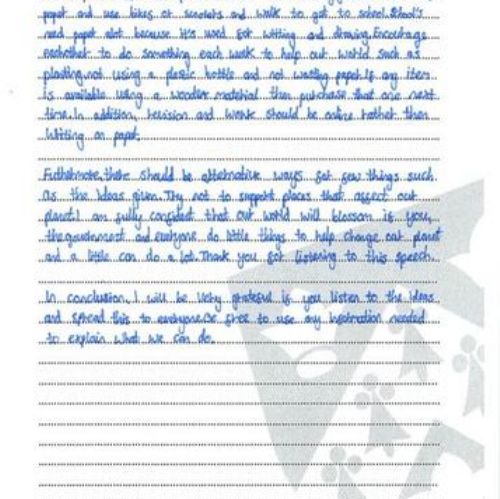 paper and use bikes or scooters and walk to get to school. School's
need paper alot because it's used for writting and drawing. Encourage
eachother to do something each week to help our world such as
planting, not using a plastic bottle and not wasting paper. If any item
is available using a wooden material then purchase that one next
time. In addition, revision and work should be online rather then
writting on paper.
Futhermore, there should be alternative ways for few things such
as the ideas given. Try not to support places that affect our
planet. I am fully confident that our world will blossom if you,
the government and everyone do little things to help change our planet
and a little can do a lot. Thank you for listening to this speech.
In conclusion, I will be very grateful if you listen to the ideas
and spread this to everyone. Be free to use any information needed
to explain what we can do.